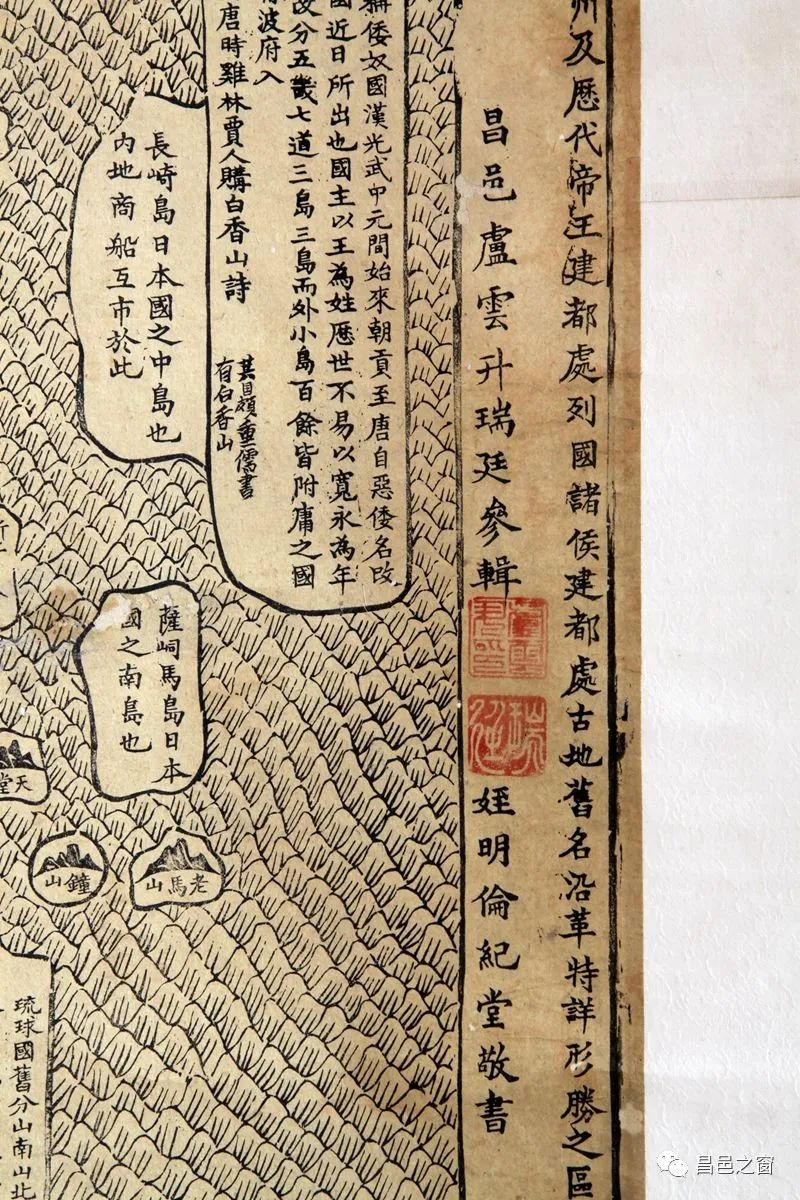 州及歷代帝王建都處列國諸侯建都處古地舊名沿革特詳形勝之區
昌邑盧雲升瑞廷參輯
姪明倫紀堂敬書
稱倭奴國漢光武中元間始來朝貢至唐自惡倭名改
國近日所出也國主以王為姓歷世不易以寬永為年
故分五畿七道三島三島而外小島百餘皆附庸之國
波府入
唐時雞林賈人購白香山詩
其國頗重儒書
有白香山
長崎島日本國之中島也
內地商船互市於此
薩峒馬島日本
國之南島也
天堂
鐘山
老馬山
琉球國舊分山南山北
昌邑之窗